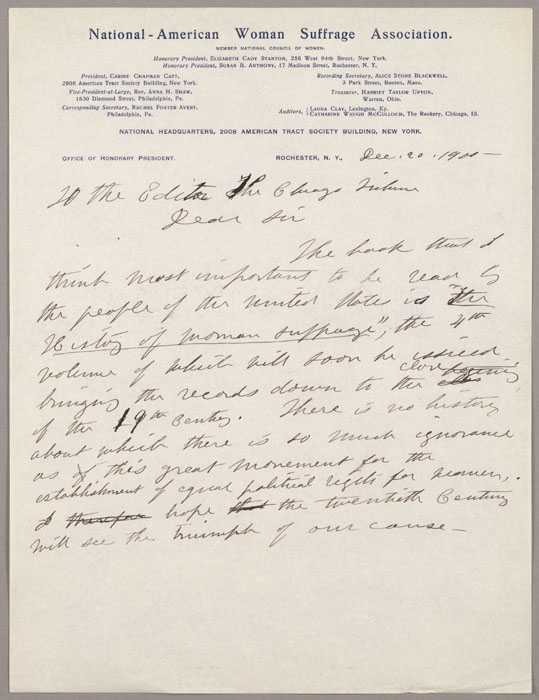 National-American Woman Suffrage Association.
MEMBER NATIONAL COUNCIL OF WOMEN.
Honorary President, ELIZABETH CADY STANTON, 250 West 94th Street, New York.
Honorary President, SUSAN B. ANTHONY, 17 Madison Street, Rochester, N. Y.
President, CARRIE CHAPMAN CATT,
2008 American Tract Society Building, New York.
Vice-President-at-Large, REV. ANNA H. SHAW,
1830 Diamond Street, Philadelphia, Pa.
Corresponding Secretary, RACHEL FOSTER AVERY,
Philadelphia, Pa.
Recording Secretary, ALICE STONE BLACKWELL,
3 Park Street, Boston, Mass.
Treasurer, HARRIET TAYLOR UPTON,
Warren, Ohio.
Auditors, { LAURA CLAY, Lexington, Ky.
CATHARINE WAUGH MCCULLOCH, The Rookery, Chicago, Ill.
NATIONAL HEADQUARTERS, 2008 AMERICAN TRACT SOCIETY BUILDING, NEW YORK.
OFFICE OF HONORARY PRESIDENT.
ROCHESTER, N. Y., Dec. 20. 1900—
To the Editor The Chicago Tribune
Dear Sir
The book that I
think most important to be read by
the people of the United States is "The
History of Woman Suffrage", the 4th
volume of which will soon be issued
bringing the records down to the close
of the 19th Century. There is no history
about which there is so much ignorance
as of this great movement for the
establishment of equal political rights for women.
I therefore hope that the twentieth Century
will see the triumph of our cause—